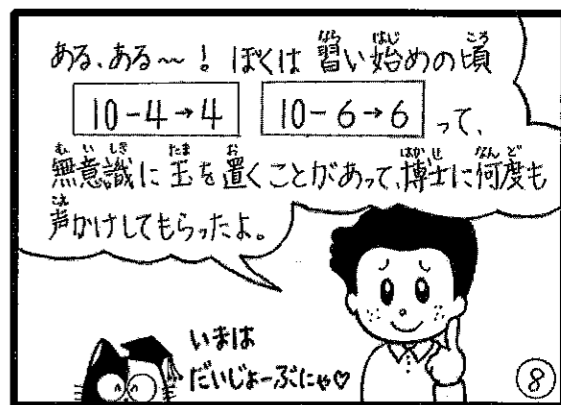 ある、ある～！ぼくは習い始めの頃
10－4→4 10－6→6 って、
無意識に玉を置くことがあって、博士に何度も
声かけしてもらったよ。
いまは
だいじょーぶにゃ♡
8